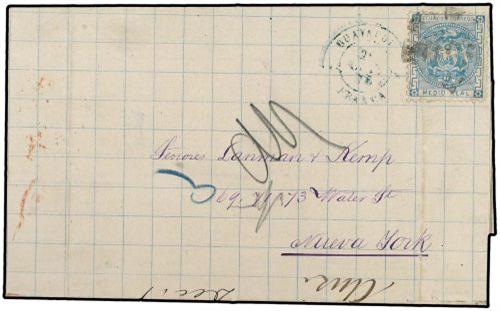 GUAYAQUIL
FRANCA
ECUADOR CORREOS
MEDIO REAL
Señores Lanman & Kemp
69 71 & 73 Water St
Nueva York